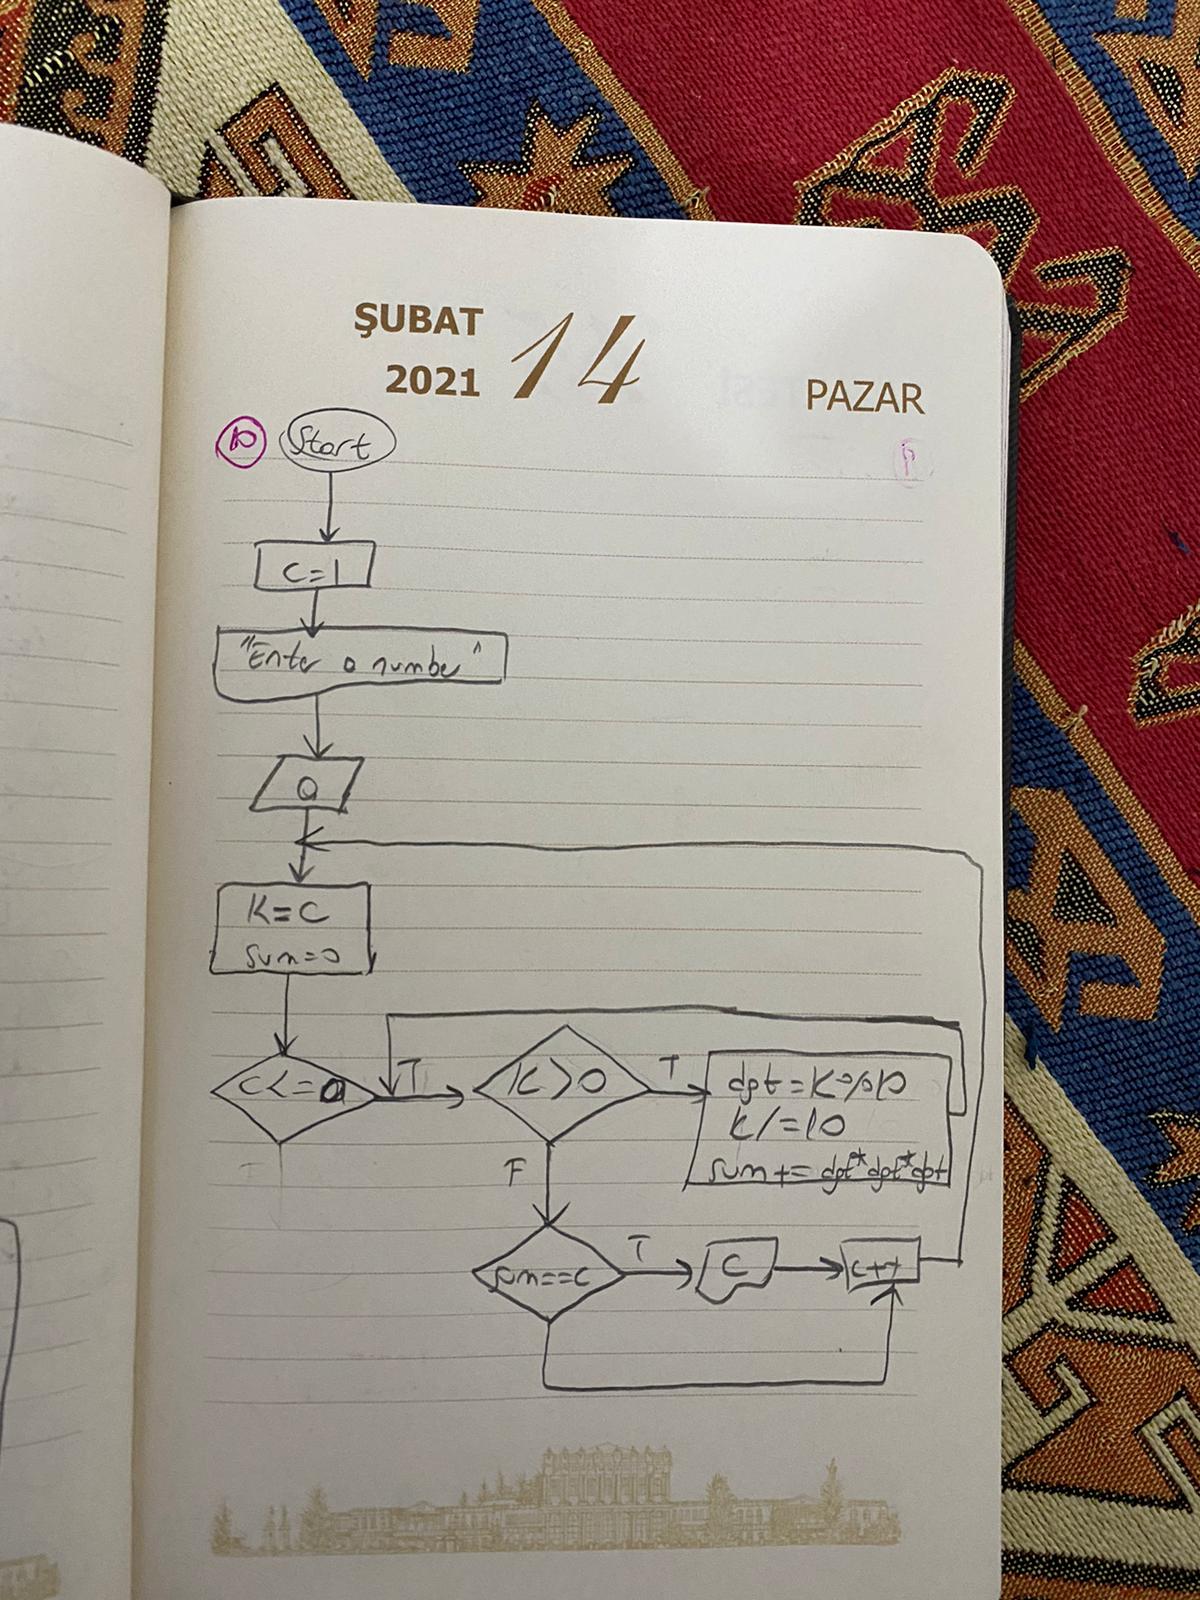 ŞUBAT
2021
14
PAZAR
10
Start
C=1
"Enter a number"
a
K=C
sum=0
C<=a
T
K>0
T
dgt=K%10
K/=10
sum+=dgt*dgt*dgt
F
sum==C
T
C
C++